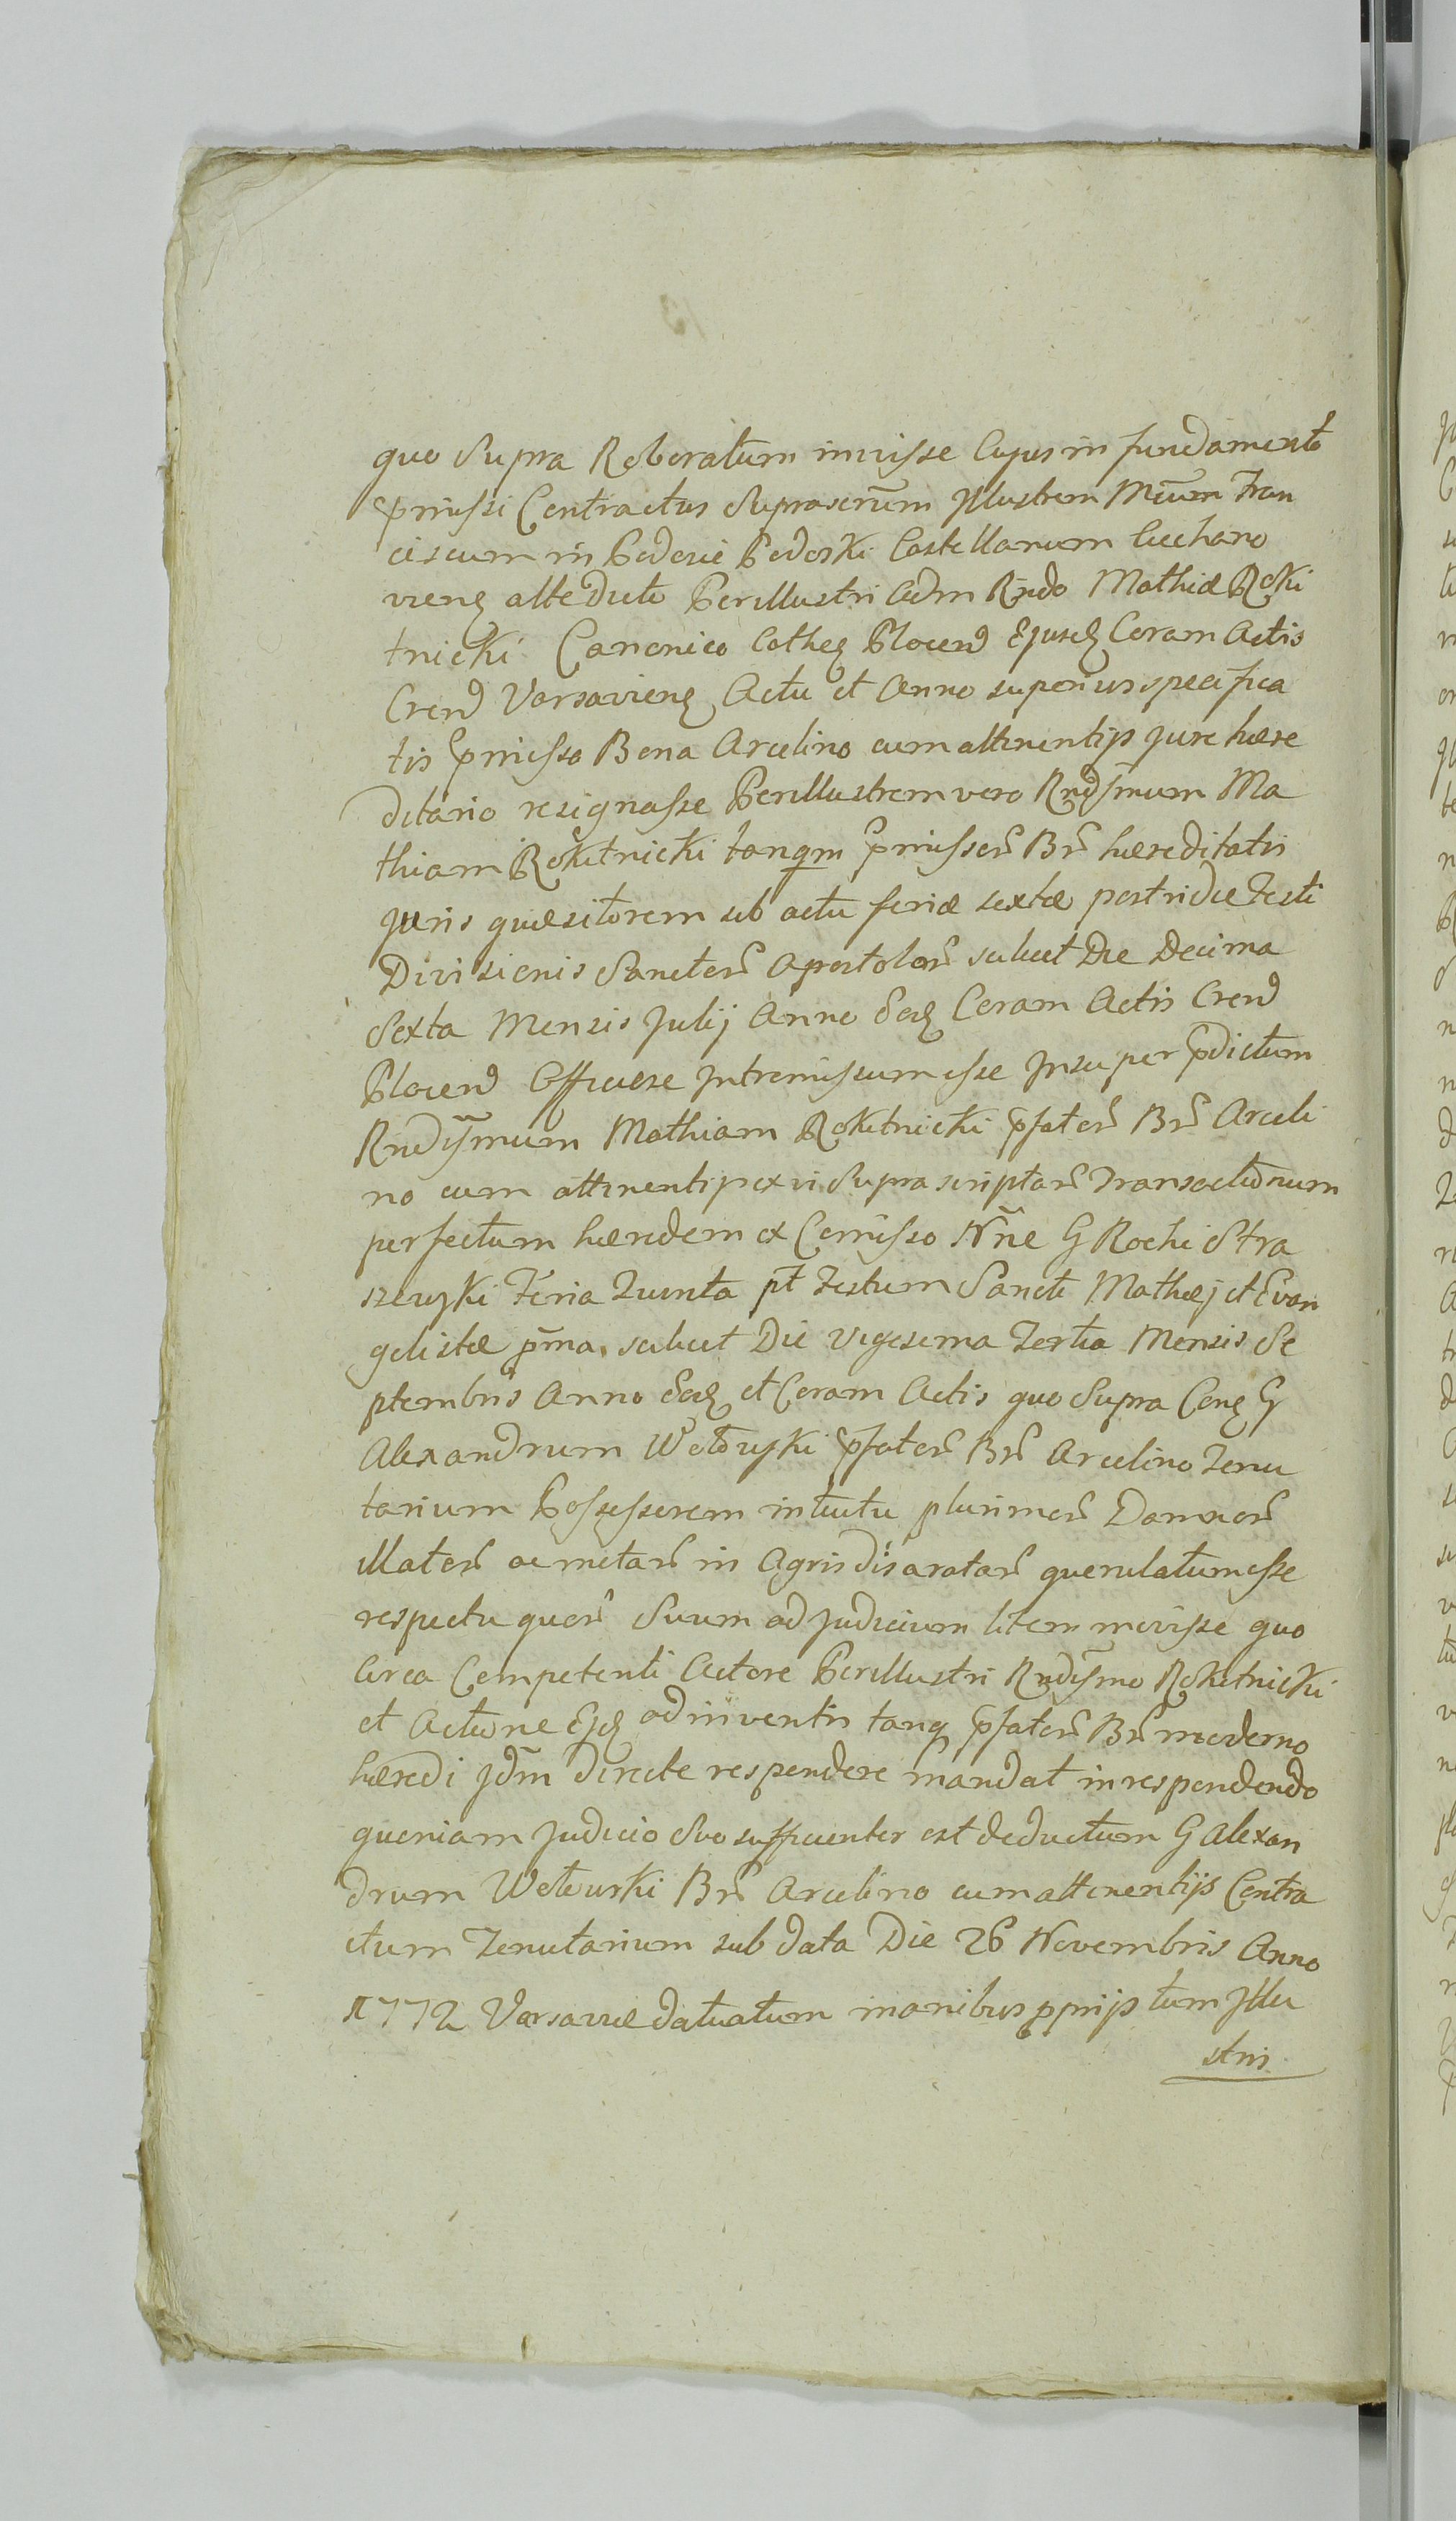 quo Supra Roboratum inivisse Cujus in fundamento
p̃missi Contractus Suprascrũm Jllustrem Mcũm Fran
ciscum in Podosie Podoski Castellanum Ciechano
vieñ altedicto Perillustri Adm Rñdo Mathiæ Roki
tnicki Canonico Catheq Plocen̄ Ejusq Coram Actis
Cren̄ Varsavienq Actu et Anno superius specifica
tis p̃misso Bona Arcelino cum attinentijs jure hære
ditario resignasse Perillustrem vero Rnd̃ssmum Ma
thiam Rokitnicki tanqm p̃missor̃ Br̃ hæreditatis
Juris quæsitorem sub actu feriæ sextæ postridie Festi
Divisionis Sanctor̃ Apostolor̃ scilicet Die Decima
Sexta Mensis Julij Anno Eodq Coram Actis Cren̄
Plocen̄ Officiose Jntromissum esse Jnsuper p̃dictum
Rnd̃ssmum Mathiam Rokitnicki p̃fator̃ Br̃ Arceli
no cum attinentijs ex vi Supra scriptar̃ Transactionum
perfectum hæredem ex Comisso Nñe G Rochi Stra
szewski Feria Quinta pt̃ Festum Sancti Mathæj et Evan
gelistæ p̃ma, scilicet Die Vigesima Tertia Mensis Se
ptembris Anno Eodq et Coram Actis quo Supra Conq G
Alexandrum Wetowski p̃fator̃ Br̃ Arcelino Tenu
tarium Possessorem intuitu plurimor̃ Damnor̃
illator̃ ac metar̃ in Agris disaratar̃ querulatum esse
respectu quor̃ Suum ad Judicium litem movisse quo
Circa Competenti Actore Perillustri Rnd̃ssmo Rokitnicki
et Actione Ejq adinventis tanq p̃fator̃ Br̃ moderno
hæredi Jdm̃ directe respondere mandat in respondendo
quoniam Judicio Suo sufficienter est deductum G Alexan
drum Wetowski Br̃ Arcelino cum attinentijs Contra
ctum Tenutarium sub data Die 26 Novembris Anno
1772 Varsaviæ datuatum manibus pprijs tum Jllu
stris